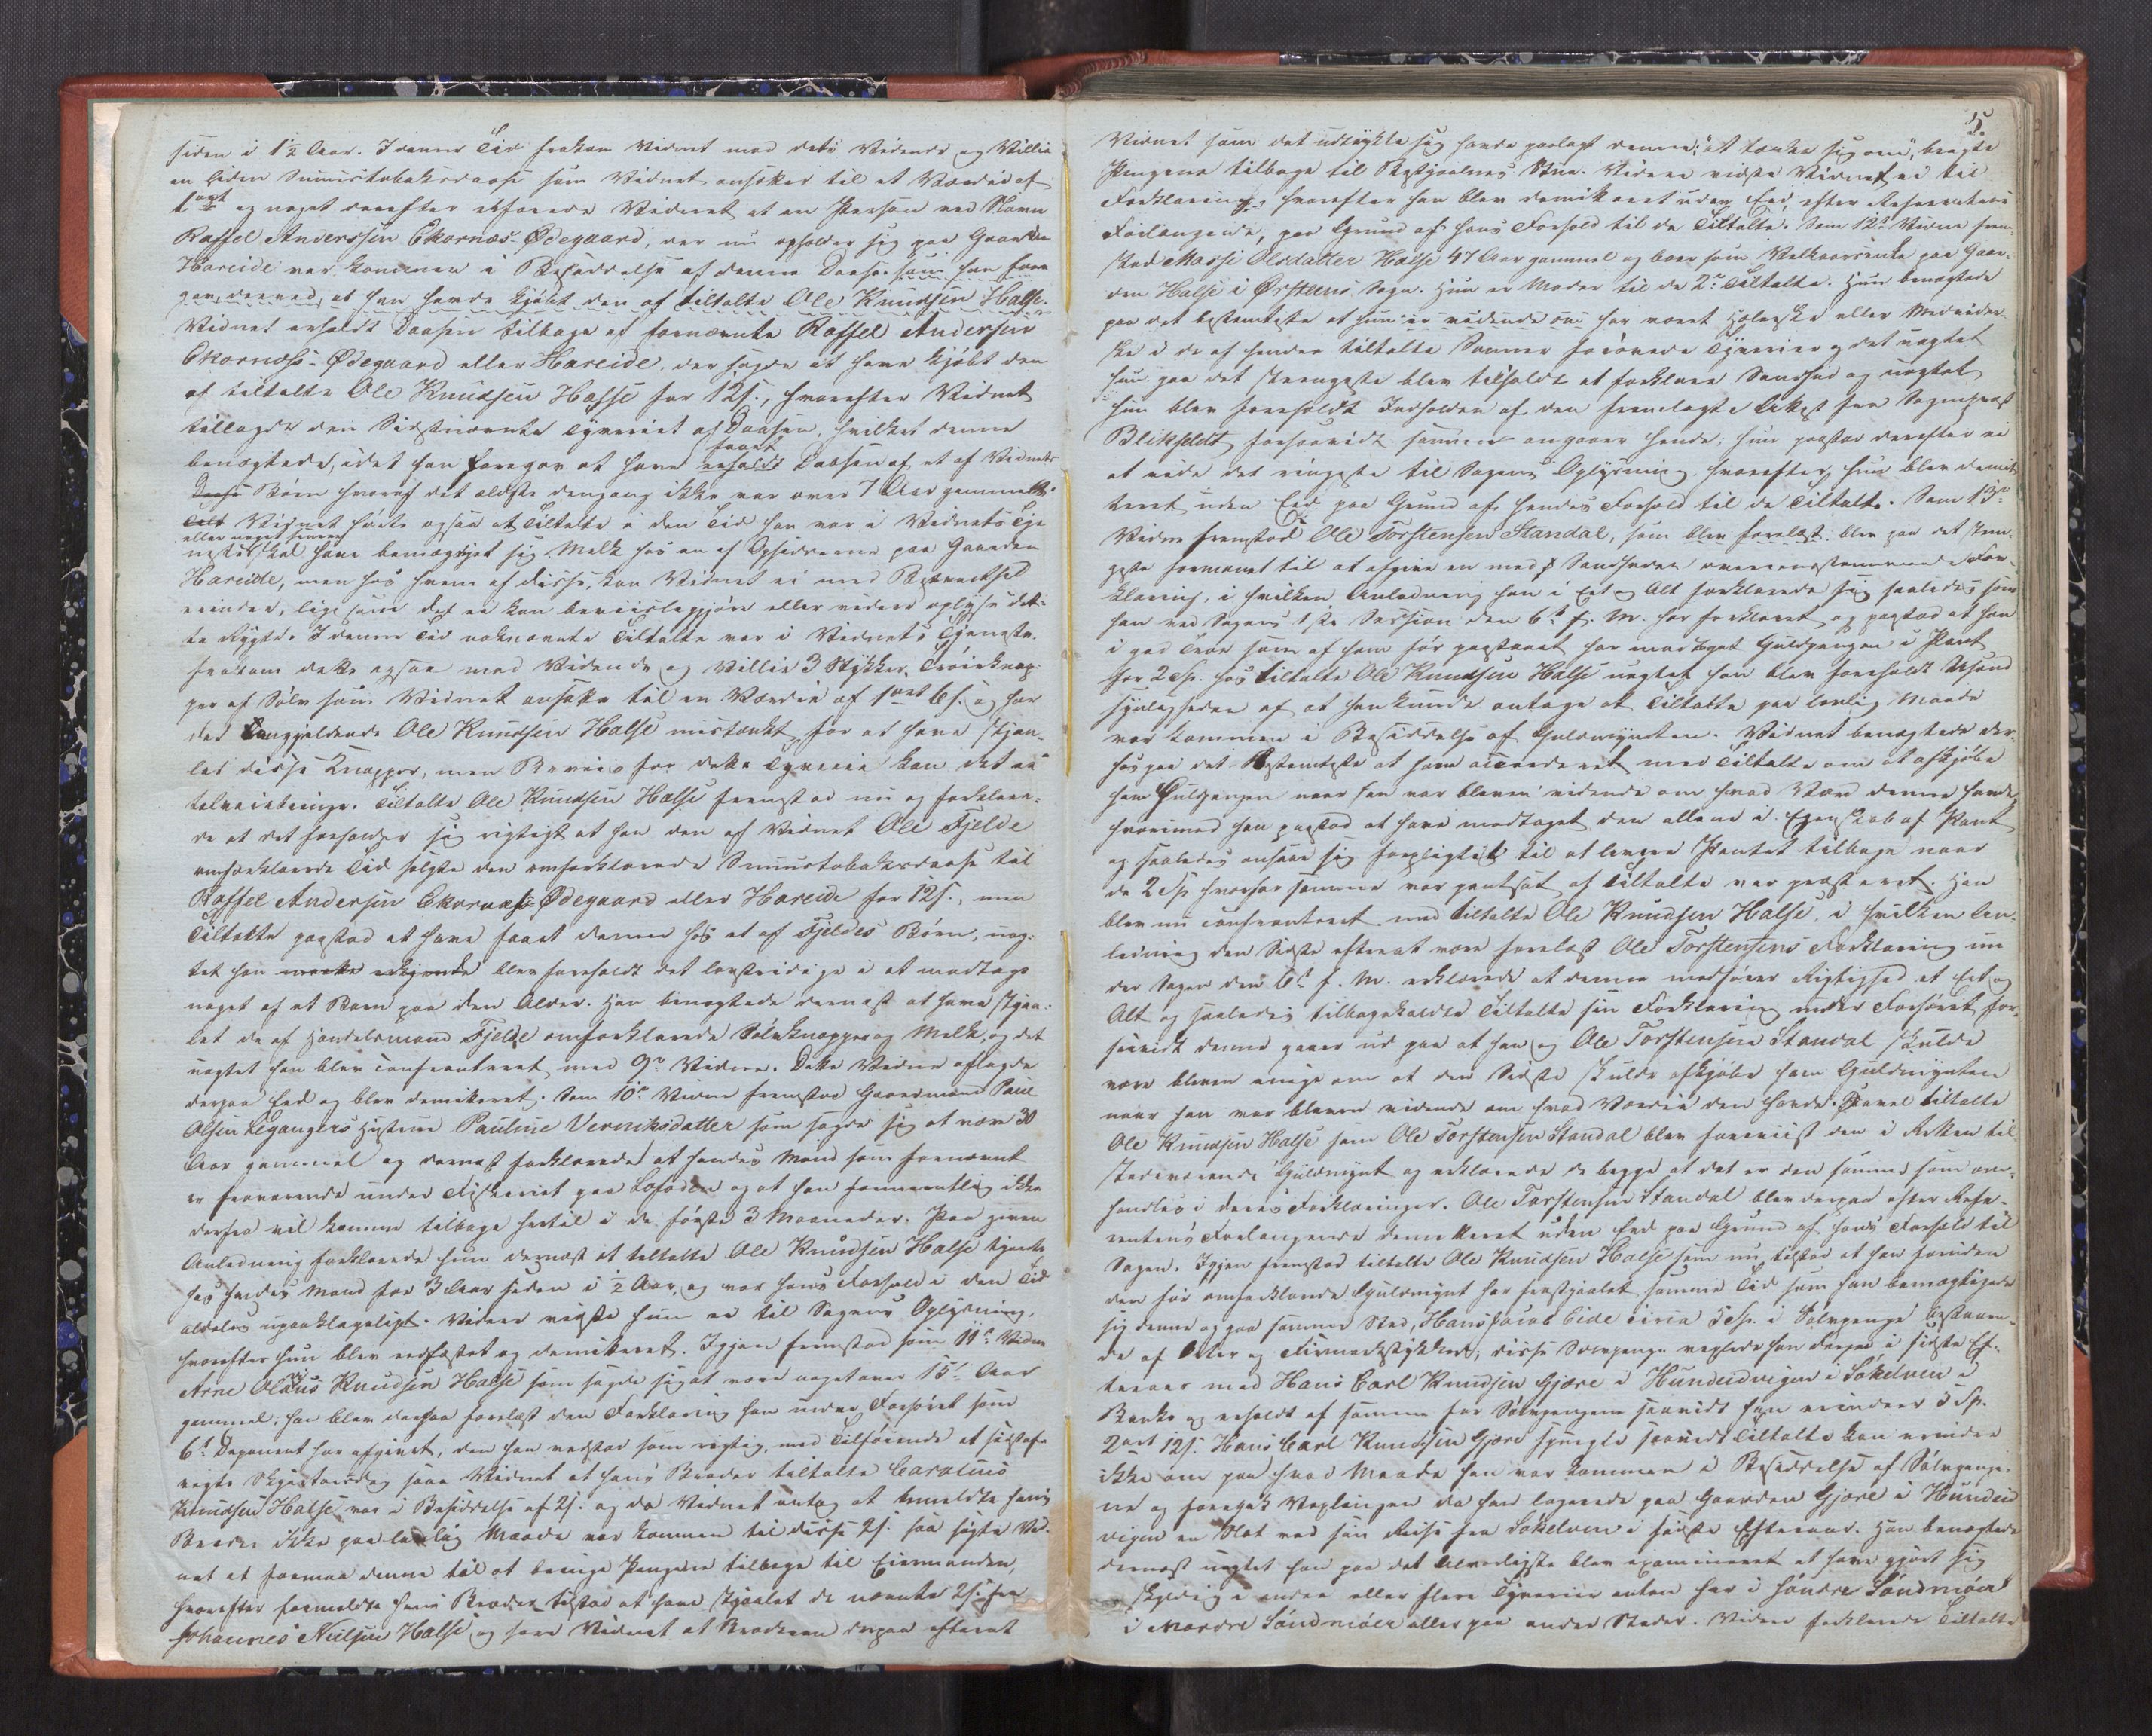 siden i 1½ Aar. I denne Tid frakom Vidnet mod dets Vidende og Villie
en liden Snuustobaksdaase som Vidnet ansætter til et Værdie af
1 ort og noget derefter erfarede Vidnet at en Person ved Navn
Raffel Anderssen Ekornæs-Ødegaard, der nu opholder sig paa Gaarden
Hareide var kommen i Besiddelse af denne Daase som han fore
gav derved, at han havde kjøbt den af tiltalte Ole Knudsen Halse.
Vidnet erholdt Daasen tilbage af fornævnte Raffel Andersen
Ekornæss-Ødegaard eller Hareide, der sagde at have kjøbt den
af tiltalte Ole Knudsen Halse for 12 s., hvorefter Vidnet
tillagde den Sidstnævnte Tyveriet af Daasen, hvilket denne
benægtede, idet han foregav at have erholdt faaet Daasen af et af Vidnets
Daase Børn hvoraf det ældste dengang ikke var over 7 Aar gammelt.
Vidnet hørte ogsaa at Tiltalte i den Tid han var i Vidnets Tje
neste eller noget senere skal have bemægtiget sig Melk hos en af Opsidderne paa Gaarden
Hareide, men hos hvem af disse, kan Vidnet ei med Bestemthed
erindre, lige som det ei kan beviisliggjøre eller videre oplyse det-
te Rygte. I denne Tid nævnte Tiltalte var i Vidnets Tjeneste
frakom dette ogsaa mod Vidende og Villie 3 Stykker Trøieknap-
per af Sølv som Vidnet ansætter til en Værdie af 1 ort 6 s. og har
det Angjeldende Ole Knudsen Halse mistænkt for at have stjaa-
let disse Knapper, men Beviis for dette Tyverie kan det ei
tilveiebringe. Tiltalte Ole Knudsen Halse fremstod nu og forklare-
de at det forholder sig rigtigt at han den af Vidnet Ole Fjelde
omforklarede Tid solgte den omforklarede Snuustobaksdaase til
Raffel Andersen Ekornæs-Ødegaard eller Hareide for 12 s., men
Tiltalte paastod at have faaet denne hos et af Fjeldes Børn, uag-
tet han blev foreholdt det lovstridige i at modtage
noget af et Barn paa den Alder. Han benægtede dernæst at have stjaa-
let de af Handelsmand Fjelde omforklarede Sølvknapper og Melk, og det
uagtet han blev confronteret med 9de Vidne. Dette Vidne aflagde
derpaa Eed og blev demiteret. Som 10de Vidne fremstod Gaardmand Paul
Olsen Legangers Hustrue Pauline Verniksdatter som sagde sig at være 30
Aar gammel og dernæst forklarede at hendes Mand som fornævnt
er fraværende under Fiskeriet paa Lofoden og at han formeentlig ikke
derfra vil komme tilbage hertil i de første 3 Maaneder. Paa given
Anledning forklarede hun dernæst at tiltalte Ole Knudsen Halse tjente
hos hendes Mand for 3 Aar siden i ½ Aar, og var hans Forhold i den Tid
aldeles upaaklageligt. Videre vidste hun ei til Sagens Oplysning,
hvorefter hun blev eedfæstet og demiteret. Igjen fremstod som 11te Vidne
Arne Olaus Knudsen Halse som sagde sig at være noget over 15 Aar
gammel; han blev derpaa forelæst den Forklaring han under Forhøret som
6te Deponent har afgivet, den han vedstod som rigtig, med Tilføiende at sidstaf-
vigte Skjærtorsdag saa Vidnet at hans Broder tiltalte Carolus
Knudsen Halse var i Besiddelse af 2 s. og da Vidnet antog at anmeldte hans
Broder ikke paa lovlig Maade var kommen til disse 2 s. saa søgte Vid-
net at formaae denne til at bringe Pengene tilbage til Eiermanden,
hvorefter formeldte hans Broder tilstod at have stjaalet de nævnte 2 s. fra
Johannes Nielsen Halse og saae Vidnet at Broderen derpaa efterat
5.
Vidnet som det udtrykte sig havde paalagt denne "at tænke sig om", bragte
Pengene tilbage til Bestjaalnes Stue. Videre vidste Vidnet ei til
Forklaring, hvorefter han blev demitteret uden Eed, efter Referentens
Forlangende, paa Grund af hans Forhold til de Tiltalte. Som 12te Vidne frem-
stod Massi Olsdatter Halse 47 Aar gammel og boer som Velkaarsenke paa Gaar-
den Halse i Ørstens Sogn. Hun er Moder til de 2de Tiltalte. Hun benægtede
paa det bestemteste at hun er vidende om har været Hælerske eller Medvider-
ske i de af hendes tiltalte Sønner forøvede Tyverier og det uagtet
hun paa det strengeste blev tilholdt at forklare Sandhed og uagtet
hun blev foreholdt Indholden af den fremlagte Attest fra Sognepræst
Blikfeldt forsaavidt samme angaaer hende; hun paastod derefter ei
at vide det ringeste til Sagens Oplysning hvorefter hun blev demit-
teret uden Eed paa Grund af hendes Forhold til de Tiltalte. Som 13de
Vidne fremstod Ole Torstensen Standal, som blev forelæst blev paa det stren-
geste formanet til at afgive en med Sandheden overeensstemmende For-
klaring, i hvilken Anledning han i Eet og Alt forklarede sig saaledes som
han ved Sagens 1ste Session den 6te f. M. har forklaret og paastod at han
i god Troe som af ham før paastaaet har modtaget Guldpengen i Pant
for 2 Sp. hos tiltalte Ole Knudsen Halse uagtet han blev foreholdt Usand
synligheden af at han kunde antage at Tiltalte paa lovlig Maade
var kommen i Besiddelse af Guldmynten. Vidnet benægtede der-
hos paa det Bestemteste at have accorderet med Tiltalte om at afkjøbe
ham Guldpengen naar han var bleven vidende om hvad Værd denne havde,
hvorimod han paastod at have modtaget den allene i Egenskab af Pant
og saaledes ansaae sig forpligtet til at levere Pantet tilbage naar
de 2 Sp. hvorfor samme var pantsat af Tiltalte var præsteret. Han
blev nu confronteret med tiltalte Ole Knudsen Halse, i hvilken An-
ledning den Sidste efterat være forelæst Ole Torstensens Forklaring un
der Sagen den 6te f. M. erklærede at denne medfører Rigtighed et Eet og
Alt og saaledes tilbagekaldte Tiltalte sin Forklaring under Forhøret for-
saavidt denne gaaer ud paa at han og Ole Torstensen Standal skulde
være bleven enige om at den Sidste skulde afkjøbe ham Guldmynten
naar han var bleven vidende om hvad Værdie den havde. Saavel tiltalte
Ole Knudsen Halse som Ole Torstensen Standal blev foreviist den i Retten til
stedeværende Guldmynt og erklærede de begge at det er den samme som om-
handles i deres Forklaringer. Ole Torstensen Standal blev derpaa efter Refe-
rentens Forlangende demitteret uden Eed paa Grund af hans Forhold til
Sagen. Igjen fremstod tiltalte Ole Knudsen Halse som nu tilstod at han foruden
den før omforklarede Guldmynt har frastjaalet samme Tid som han bemægtigede
sig denne og paa samme Sted, Hans Jacob Eide circa 5 Sp. i Sølvpenge bestaaen-
de af Orter og Firmarkstykker; disse Sølvpenge vexlede han derpaa i sidste Ef-
teraar med Hans Carl Knudsen Gjære i Hundeidvigen i Søkelven i
Banko og erholdt af samme for Sølvpengene saavidt han erindrer 3 Sp.
2 ort 12 s. Hans Carl Knudsen Gjære spurgte saavidt Tiltalte kan erindre
ikke om paa hvad Maade han var kommen i Besiddelse af Sølvpenge-
ne og foregik Vexlingen da han logerede paa Gaarden Gjære i Hundeid
vigen en Nat ved sin Reise fra Søkelven i sidste Efteraar. Han benægtede
dernæst uagtet han paa det Alvorligste blev examineret at have gjort sig
skyldig i andre eller flere Tyverier enten her i Søndre Søndmøer
i Nordre Søndmøer eller paa andre Steder. Videre forklarede Tiltalte